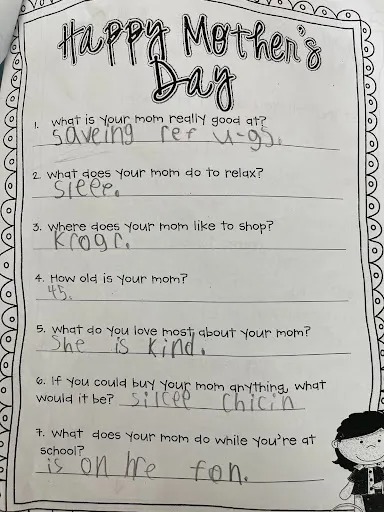 Happy Mother's
Day
1. What is your mom really good at?
saveing ref u-gs.
2. What does your mom do to relax?
Sleee.
3. Where does your mom like to shop?
Krogr.
4. How old is your mom?
45.
5. What do you love most about your mom?
She is kind.
6. If you could buy your mom anything, what
would it be? silcee chicin
7. What does your mom do while you're at
school?
is on hre fon.